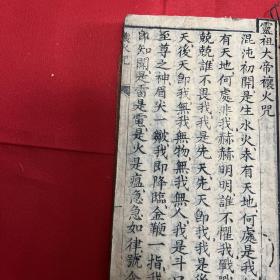 靈祖大帝禳火咒
混沌初開是生水火未有天地何處是我
有天地何處非我赫赫明明誰不懼我戰
兢兢誰不畏我我是先天先天卽我我是
天後天卽我無我無物無我無人我是斗口
至尊之神眉尖一皺我即降臨金鞭一指
卽知開是雷是電是火是瘟急急如律令
火咒